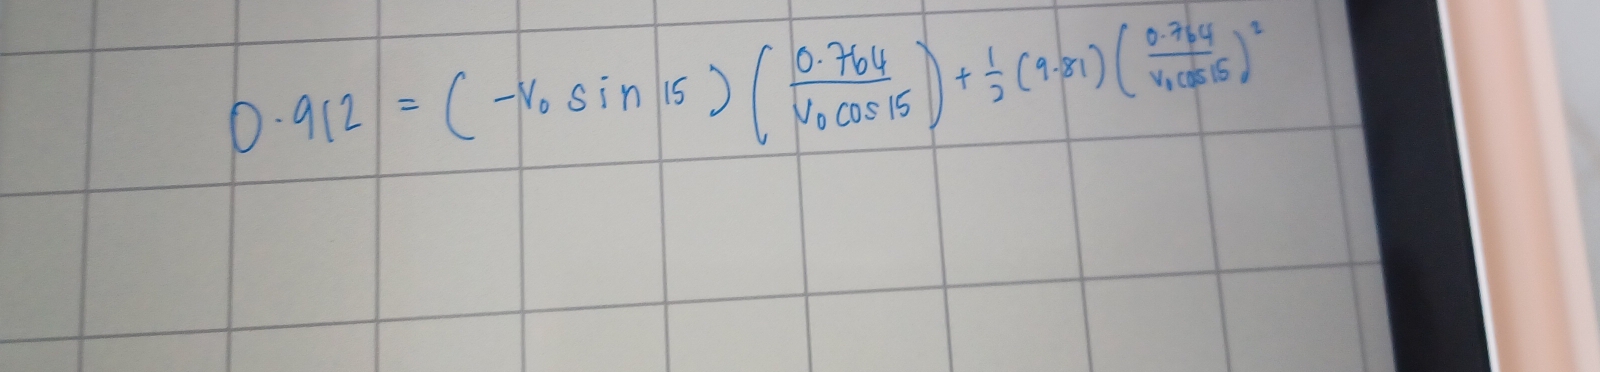 0.912 = (-V₀ sin 15) (0.764 / V₀ cos 15) + 1/2 (9.81) (0.764 / V₀ cos 15)²